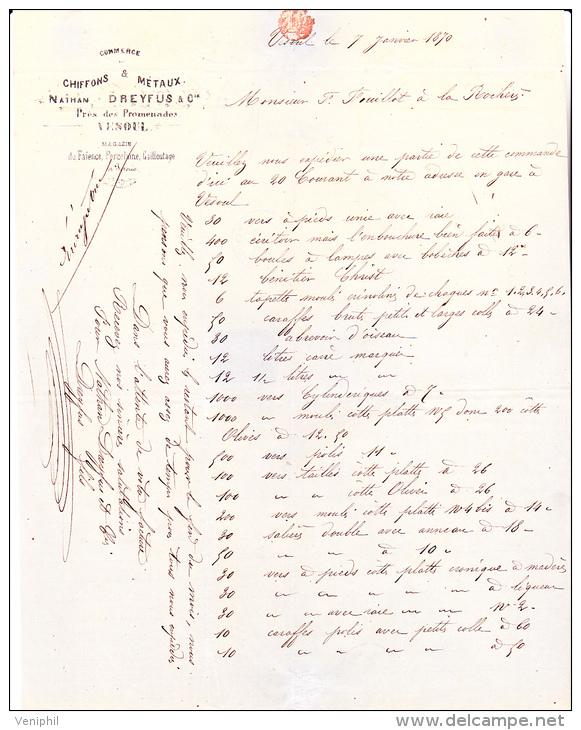 COMMERCE
CHIFFONS & MÉTAUX.
NATHAN DREYFUS & Cie
Près des Promenades
VESOUL
MAGAZIN
de Faïence, Porcelaine, Cailloutage
Vesoul le 7 Janvier 1870
Monsieur F. Fouillot à la Rochère
Veuillez nous expédier une partie de cette commande
d'ici au 20 Courant à notre adresse en gare à
Vesoul
30 vers à pieds unie avec raie
400 mais l'embouchure bien faite à 6 -
50 boules à lampes avec bobèches à 12
12 bénitier Christ
6 tapette mouli crinolins de chaques no 1.2.3.4.5.6.
50 caraffes bruts petits et larges colle à 24 -
30 abrevoir d'oiseau
12 litres carré marquée
12 1/2 litres " "
1000 vers Cylindriques à 7 -
1000 " mouli cotte platte no 5 donc 200 cotte
Olives à 12.50
500 vers polis 11 "
100 vers taillés cotte platte à 26
100 " " cotte Olives à 26
200 vers mouli cotte platte no 4 bis à 14 -
30 salière double avec anneau à 18 -
50 " " à 10 -
30 vers à pieds cotte platte conique à madère
30 " " " " " à liqueur
30 " " avec raie " " no 2 -
10 caraffes polis avec petits colle à 60
10 " " " " à 50
Veuillez nous expédier le restant pour la fin du mois, nous
pensons que vous aurez assez de temps pour tous nous expédier
Dans l'attente de votre facture
Recevez nos sincères salutations
Pour Nathan Dreyfus & Cie
Dreyfus fils
Veniphil
delcampe.net